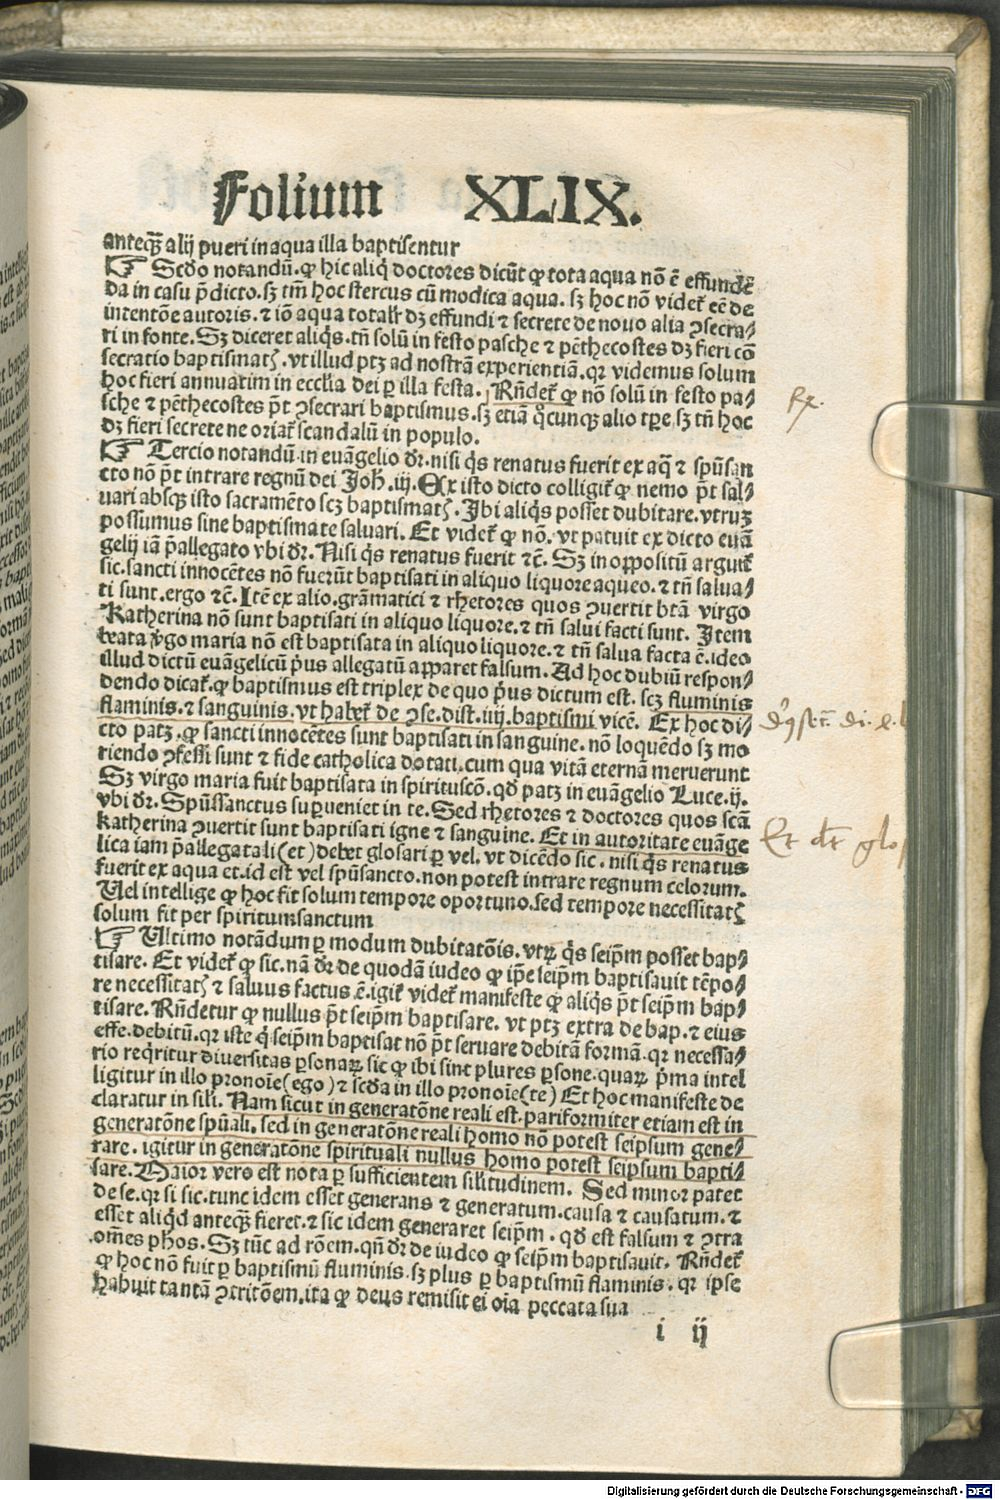 Folium XLIX.
anteqȝ alij pueri in aqua illa baptisentur
☞ Scdo notandū. ꝙ hic aliq̄ doctores dicūt ꝙ tota aqua nō ē effundē
da in casu p̄dicto. sȝ tm̄ hoc stercus cū modica aqua. sȝ hoc nō videt̄ eē de
intentōe autoris. ⁊ iō aqua totalr̄ dȝ effundi ⁊ secrete de nouo alia ꝯsecra⸗
ri in fonte. Sȝ diceret aliqͥs. tn̄ solū in festo pasche ⁊ pēthecostes dȝ fieri cō
secratio baptismatꝭ. vt illud ptȝ ad nostrā experientiā. qꝛ videmus solum
hoc fieri annuatim in ecclīa dei ꝑ illa festa. Rn̄det̄ ꝙ nō solū in festo pa⸗
sche ⁊ pēthecostes p̄t ꝯsecrari baptismus. sȝ etiā qͦcunqȝ alio tꝑe, sȝ tn̄ hoc
dȝ fieri secrete ne oriat̄ scandalū in populo.
☞ Tercio notandū. in euāgelio dr̄. nisi qͥs renatus fuerit ex aq̄ ⁊ spūsan
cto nō p̄t intrare regnū dei Joh̄. iij. Ex isto dicto colligit̄ ꝙ nemo p̄t sal⸗
uari absqȝ isto sacramēto scȝ baptismatꝭ. Ibi aliqͥs posset dubitare. vtruȝ
possumus sine baptismate saluari. Et videt̄ ꝙ nō. vt patuit ex dicto euā
gelij iā p̄allegato vbi dr̄. Nisi qͥs renatus fuerit ⁊c̄. Sȝ in oppositū arguit̄
sic. sancti innocētes nō fuerūt baptisati in aliquo liquore aqueo. ⁊ tn̄ salua⸗
ti sunt. ergo ⁊c̄. Itē ex alio. grāmatici ⁊ rhetores quos ꝯuertit btā virgo
Katherina nō sunt baptisati in aliquo liquore. ⁊ tn̄ salui facti sunt. Item
beata v̓go maria nō est baptisata in aliquo liquore. ⁊ tn̄ salua facta ē. ideo
illud dictū euāgelicū pͥus allegatū apparet falsum. Ad hoc dubiū respon⸗
dendo dicat̄. ꝙ baptismus est triplex de quo pͥus dictum est. scȝ fluminis
flaminis. ⁊ sanguinis. vt habet̄ de ꝯse. dist. iiij. baptismi vicē. Ex hoc di⸗
cto patȝ. ꝙ sancti innocētes sunt baptisati in sanguine. nō loquēdo sȝ mo
riendo ꝯfessi sunt ⁊ fide catholica dotati. cum qua vitā eternā meruerunt
Sȝ virgo maria fuit baptisata in spirituscō. qd̄ patȝ in euāgelio Luce. ij.
vbi dr̄. Spūssanctus suꝑueniet in te. Sed rhetores ⁊ doctores quos scā
katherina ꝯuertit sunt baptisati igne ⁊ sanguine. Et in autoritate euāge
lica iam p̄allegata li (et) debet glosari ꝑ vel. vt dicēdo sic. nisi qͥs renatus
fuerit ex aqua et. id est vel spūsancto. non potest intrare regnum celorum.
Uel intellige ꝙ hoc fit solum tempore oportuno. sed tempore necessitatꝭ
solum fit per spiritumsanctum
☞ Ultimo notādum ꝑ modum dubitatōis. vtrꝝ qͥs seip̄m posset bap⸗
tisare. Et videt̄ ꝙ sic. nā dr̄ de quodā iudeo ꝙ ip̄e seip̄m baptisauit tēpo⸗
re necessitatꝭ ⁊ saluus factus ē. igit̄ videt̄ manifeste ꝙ aliqͥs p̄t seip̄m bap⸗
tisare. Rn̄detur ꝙ nullus p̄t seip̄m baptisare. vt ptȝ extra de bap. ⁊ eius
effe. debitū. qꝛ iste qͥ seip̄m baptisat nō p̄t seruare debitā formā. qꝛ necessa⸗
rio reqͥritur diuersitas ꝑsonaꝝ sic ꝙ ibi sint plures ꝑsone. quaꝝ pͥma intel
ligitur in illo pronoīe (ego) ⁊ scda in illo pronoīe (te) Et hoc manifeste de
claratur in sili. Nam sicut in generatōne reali est. pariformiter etiam est in
generatōne spūali. sed in generatōne reali homo nō potest seipsum gene⸗
rare. igitur in generatōne spirituali nullus homo potest seipsum bapti⸗
sare. Maior vero est nota ꝑ sufficientem silitudinem. Sed minor patet
de se. qꝛ si sic. tunc idem esset generans ⁊ generatum. causa ⁊ causatum. ⁊
esset aliqͥd anteqȝ fieret. ⁊ sic idem generaret seip̄m. qd̄ est falsum ⁊ ꝯtra
om̄es phos. Sȝ tūc ad rōem. qn̄ dr̄ de iudeo ꝙ seip̄m baptisauit. Rn̄det̄
ꝙ hoc nō fuit ꝑ baptismū fluminis. sȝ plus ꝑ baptismū flaminis. qꝛ ipse
habuit tantā ꝯtritōem. ita ꝙ deus remisit ei oīa peccata sua
i ij
Rx.
Et dt glo
Digitalisierung gefördert durch die Deutsche Forschungsgemeinschaft - DFG